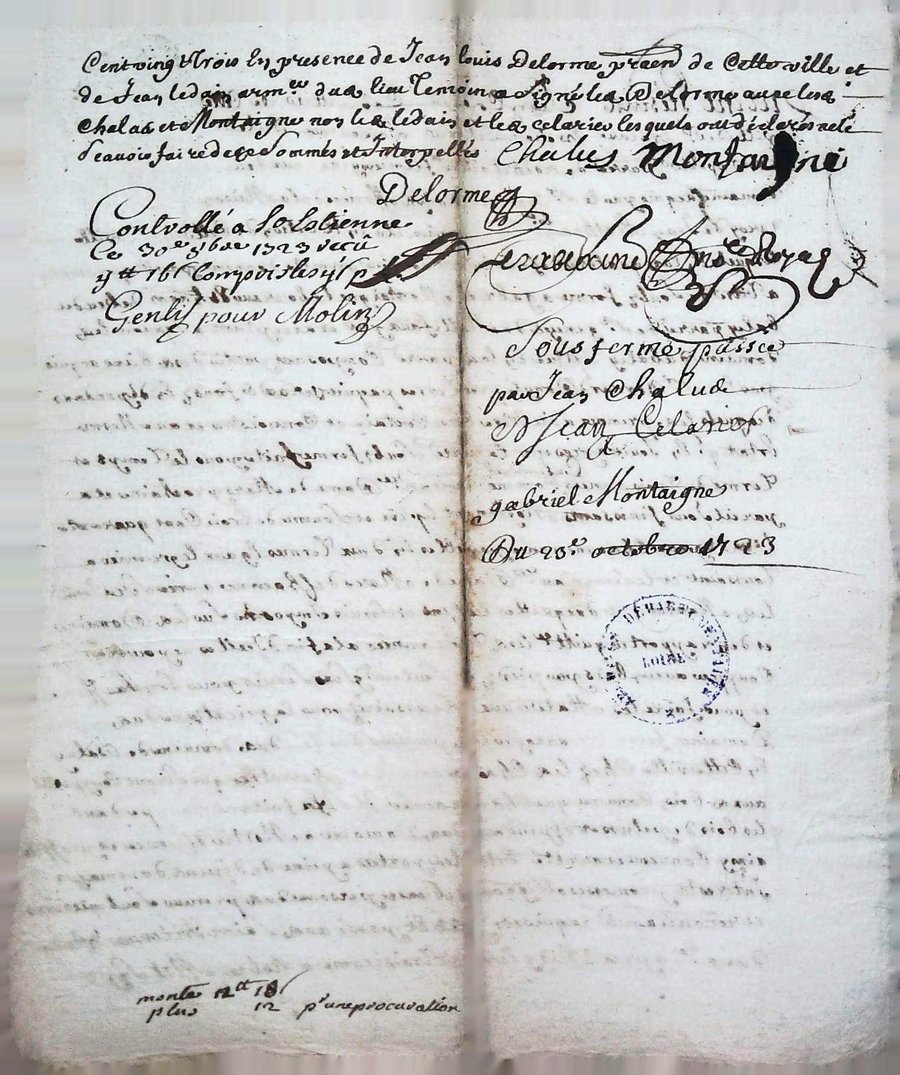 Cent vingt trois En presence de Jean Louis Delorme pratn de Cette ville et
de Jean ledain arm.er dud. lieu temoins signé led. Delorme avec lesd.
Chalus et Montaigne non led. ledain et led. celarier lesquels ont déclaré ne le
Scavoir faire de ce Sommés et Interpellés Chalus Montaigne
Delorme
Controllé a St Estienne
Ce 30e 8bre 1723 reçû
Gentil pour Molin
Nre Royal
Sous ferme passée
par Jean Chalus
A Jean Celarier
&
gabriel Montaigne
Du 23e octobre 1723
LOIRE
monte 12tt 18s
plus 12 pr une procuration